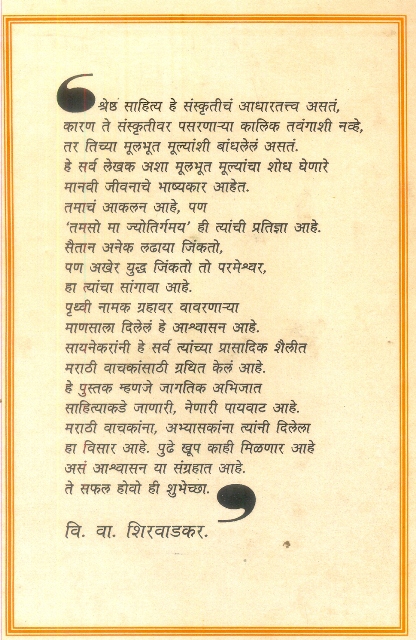 श्रेष्ठ साहित्य हे संस्कृतीचं आधारतत्त्व असतं,
कारण ते संस्कृतीवर पसरणाऱ्या कालिक तवंगाशी नव्हे,
तर तिच्या मूलभूत मूल्यांशी बांधलेलं असतं.
हे सर्व लेखक अशा मूलभूत मूल्यांचा शोध घेणारे
मानवी जीवनाचे भाष्यकार आहेत.
तमाचं आकलन आहे, पण
‘तमसो मा ज्योतिर्गमय’ ही त्यांची प्रतिज्ञा आहे.
सैतान अनेक लढाया जिंकतो,
पण अखेर युद्ध जिंकतो तो परमेश्वर,
हा त्यांचा सांगावा आहे.
पृथ्वी नामक ग्रहावर वावरणाऱ्या
माणसाला दिलेलं हे आश्वासन आहे.
सायनेकरांनी हे सर्व त्यांच्या प्रासादिक शैलीत
मराठी वाचकांसाठी ग्रथित केलं आहे.
हे पुस्तक म्हणजे जागतिक अभिजात
साहित्याकडे जाणारी, नेणारी पायवाट आहे.
मराठी वाचकांना, अभ्यासकांना त्यांनी दिलेला
हा विसार आहे. पुढे खूप काही मिळणार आहे
असं आश्वासन या संग्रहात आहे.
ते सफल होवो ही शुभेच्छा.
वि. वा. शिरवाडकर.